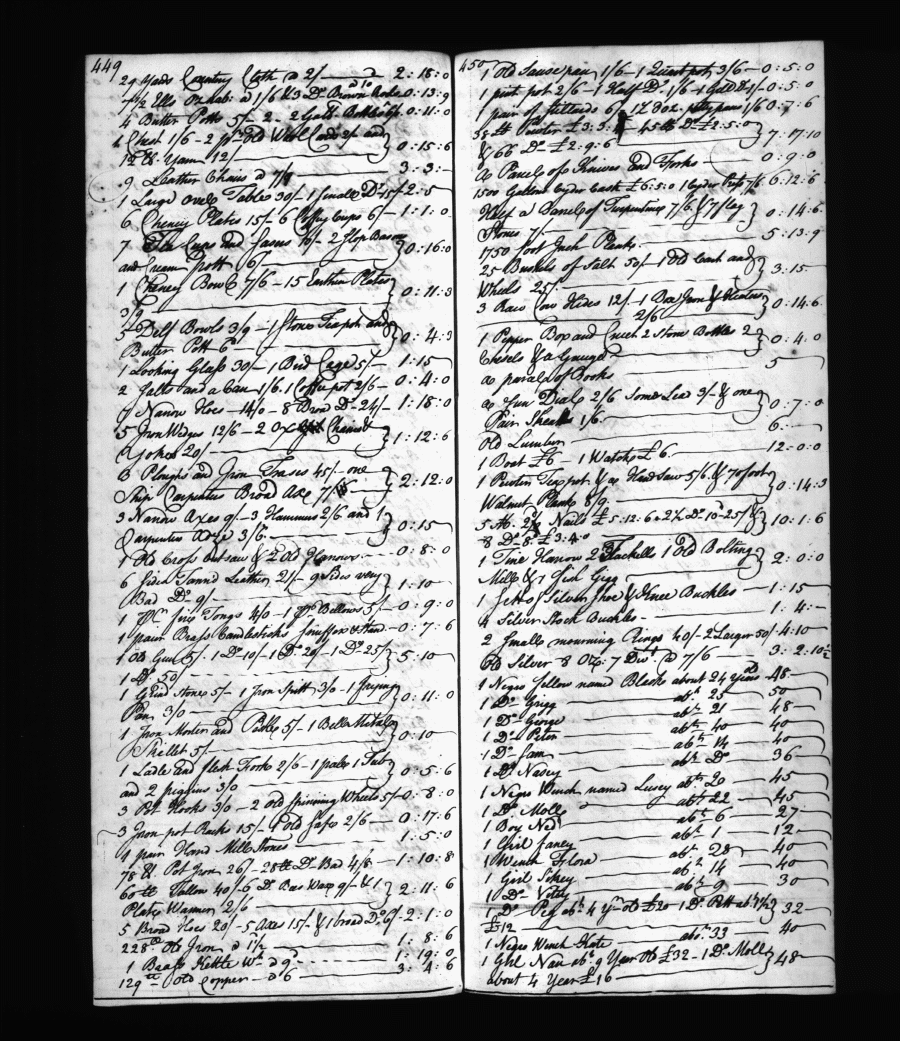 449
29 Yards Country Cloth @ 2/ 2: 18: 0
7 1/2 Ells Oznab: @ 1/6 & 3 Do Brown 0: 13: 9
4 Butter Potts 5/- 2 0: 11: 0
1 Chest 1/6 - 2 old Wheel and
12 lb Yarn 12/ 0: 15: 6
9 Leather Chairs @ 7/ 3: 3:
1 Large ovel Table 30/- 1 Small Do 15/ 2: 5
6 Cheney Plates 15/- 6 Coffey Cups 6/- 1: 1: 0
7 Tea Cups and Sasers 10/- 2 Slop Basons
and Cream Pott 0: 16: 0
1 Cheney Bowl 7/6 - 15 Earthen Plates
3/9 0: 11: 3
5 Delf Bowls 3/9 - 1 Stone Teapot and
Butter Pott 6d 0: 4: 3
1 Looking Glass 30/- 1 Bird Cage 5/- 1: 15
2 Salts and a Can 1/6. 1 Coffee pot 2/6 - 0: 4: 0
7 Narrow Hoes - 14/0 - 8 Broad Do 24/- 1: 18: 0
5 Iron Wedges 12/6 - 2 Ox Chains &
Yokes 20/ 1: 12: 6
3 Ploughs and Iron Trases 45/- one
Ship Carpenters Broad Axe 7/ 2: 12: 0
3 Narrow Axes 9/- 3 Hammers 2/6 and 1
Carpenters Adze 3/6 0: 15
1 Old Cross Cut saw & 2 Old Harrows 0: 8: 0
6 Sides Tannd Leather 21/- 9 Sides very
Bad Do 9/ 1: 10
1 Pr fire Tongs 4/0 - 1 Pr Bellows 5/- 0: 9: 0
1 pair Brass Candlesticks Snuffers & Stand 0: 7: 6
1 Old Gun 5/. 1 Do 10/- 1 Do 20/- 1 Do 25/
1 Do 50/ 5: 10
1 Grind Stone 5/- 1 Iron Spitt 3/0 - 1 Frying
Pan 3/0 0: 11: 0
1 Iron Morter and Pestle 5/- 1 Bell Mettle
Skillet 5/ 0: 10
1 Ladle and flesh Forke 2/6 - 1 pale 1 Tub
and 2 piggins 3/0 0: 5: 6
3 Pot Hooks 3/0 - 2 old Spinning Wheels 5/- 0: 8: 0
3 Iron pot Racks 15/- 1 old Safe 2/6 - 0: 17: 6
1 pair Hand Mill Stones 1: 5: 0
78 lb Pot Iron 26/- 28 lb Do Bad 4/8 - 1: 10: 8
60 lb Tallow 40/- 6 Do Bees Wax 9/- & 1
Plate Warmer 2/6 2: 11: 6
5 Broad Hoes 20/- 5 Axes 15/- & 1 broad Do 6/- 2: 1: 0
228 lb Old Iron @ 1 1: 8: 6
1 Brass Kettle Wt @ 9d 1: 19: 0
129 lb old Copper @ 6 3: 4: 6
450
1 Old Sause pan 1/6 - 1 Quart pot 3/6 - 0: 5: 0
1 pint pot 2/6 - 1 Half Do 1/6 - 1 0: 5: 0
1 pair of Stilierds 6/ 1/6 0: 7: 6
38 lb Pewter £3: 3: 45 lb Do £2: 5: 0
& 66 Do £2: 9: 6 7: 17: 10
a Parcel of Knives and Forks 0: 9: 0
1500 Gallons Cyder Cask £6: 5: 0 1 Cyder Press 7/6 6: 12: 6
Half a Barrel of Turpentine 7/6 & 7 flag
Stones 7/- 0: 14: 6
1750 foot Inch Plank 5: 13: 9
25 Bushels of Salt 50/- 1 Old Cart and
Wheels 25/ 3: 15
3 Raw Cow Hides 12/- 1 Box Iron & Heaters
2/6 0: 14: 6
1 Pepper Box and Cruet 2 Stone Bottles 2
Chisels & a Gouge 0: 4: 0
a parcel of Books 5
a Sun Dial 2/6 Some Lead 3/- & one
Pair Shears 1/6 0: 7: 0
Old Lumber 6:
1 Boat £6 - 1 Watch £6. 12: 0: 0
1 Pewter Tea pot & a Hand Saw 5/6 & 70 foot
Walnut Plank 8/9 0: 14: 3
5 M: Nails £5: 12: 6 2 1/2 Do 10d 25/ &
8 Do 8d £3: 4: 0 10: 1: 6
1 Tine Harrow 2 Shackells 1 Old Bolting
Mill & 1 Fish Gigg 2: 0: 0
1 Sett of Silver Shoe & Knee Buckles 1: 15
4 Silver Stock Buckles 1: 4:
2 Small mourning Rings 40/- 2 Larger 50/ 4: 10
Old Silver 8 Oz: 7 Dwt @ 7/6 3: 2: 10 1/2
1 Negro fellow named Blacke about 24 Years old 48
1 Do Grigg abt 25 50
1 Do George abt 21 48
1 Do Peter abt 40 40
1 Do Sam abt 14 40
1 Do Nasey abt Do 36
1 Negro Wench named Lucey abt 20 45
1 Do Moll abt 22 45
1 Boy Ned abt 6 27
1 Girl Faney abt 1 12
1 Wench Flora abt 28 40
1 Girl Sukey abt 14 40
1 Do abt 9 30
1 Do Peg abt 4 Yrs old £20 - 1 Do Patt abt 1 1/2
£12 32
1 Negro Wench Kate abt 33 40
1 Girl Nan abt 9 Year Old £32 - 1 Do Moll
about 4 Year £16 48